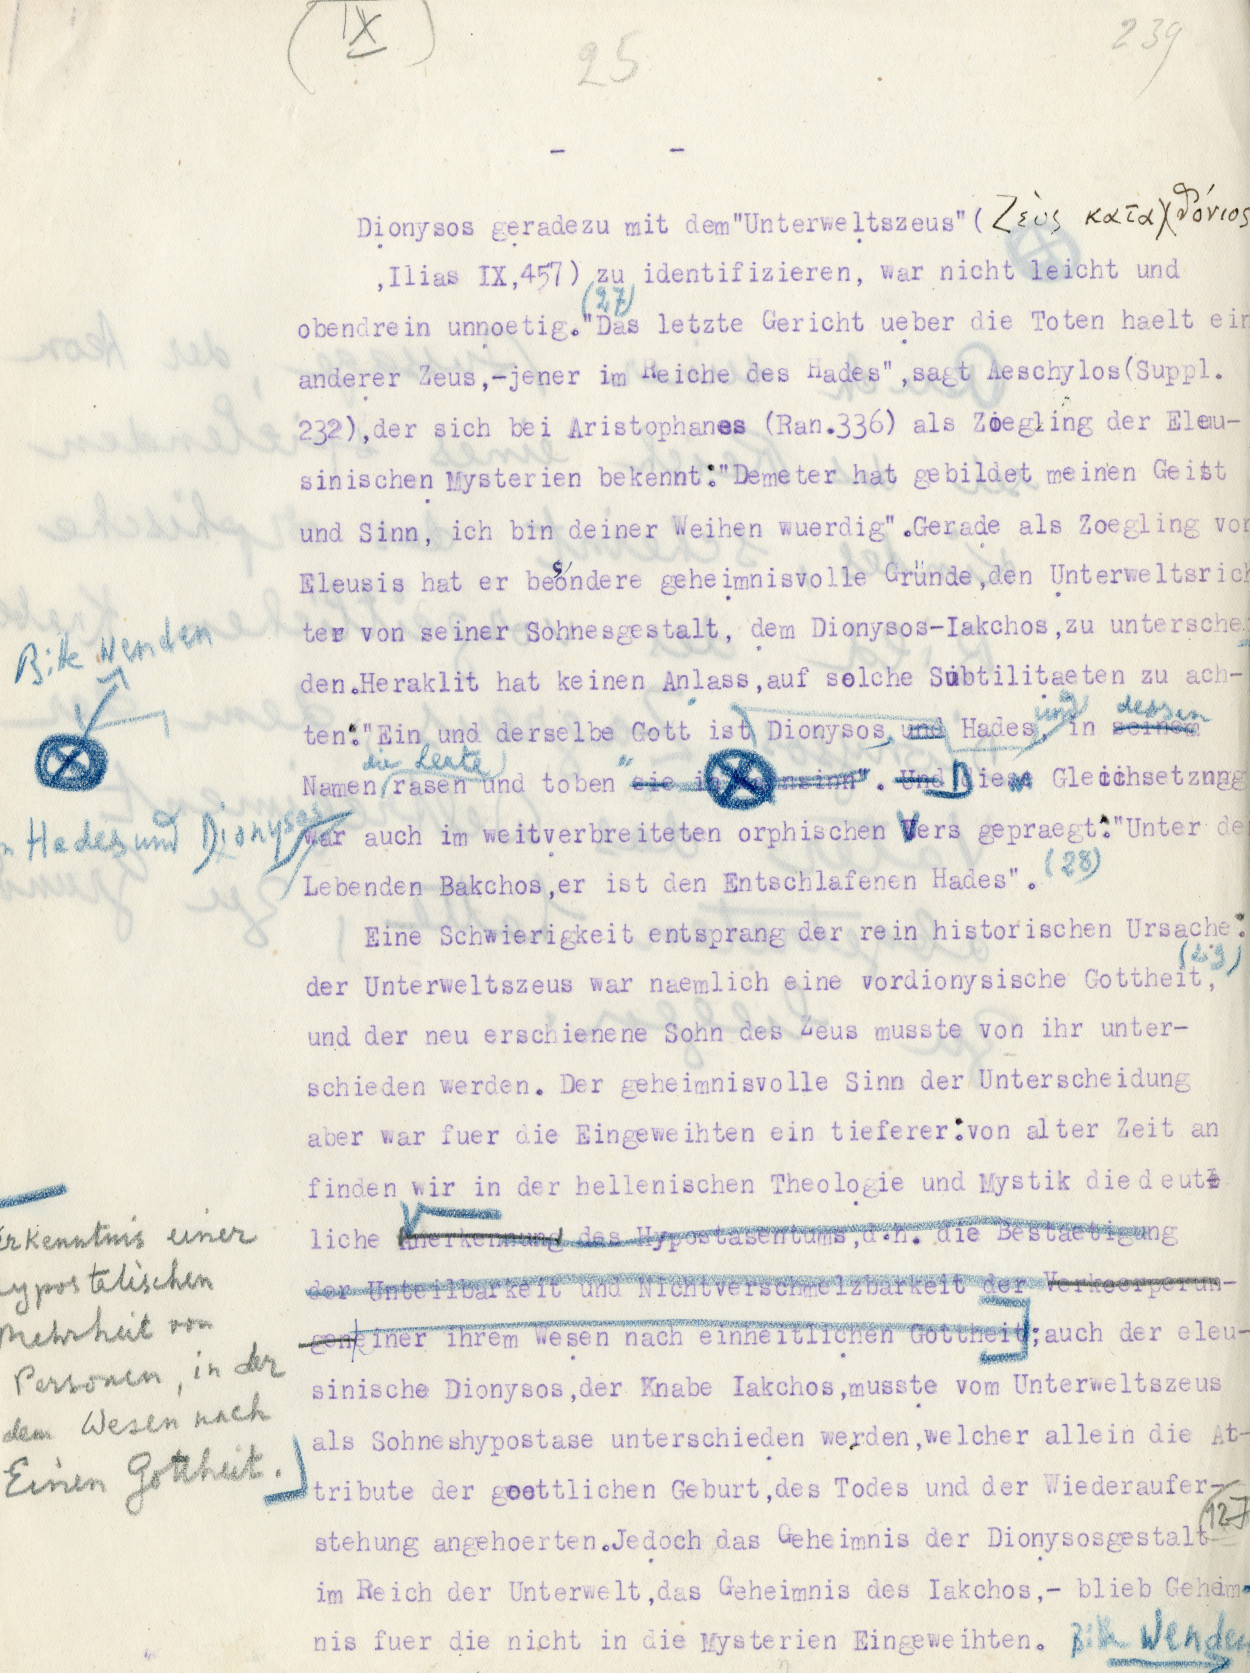 (IX)
239
25
- -
Dionysos geradezu mit dem"Unterweltszeus"( Ζεὺς καταχθόνιος
,Ilias IX,457) zu identifizieren, war nicht leicht und
(27)
obendrein unnoetig."Das letzte Gericht ueber die Toten haelt ein
anderer Zeus,-jener im Reiche des Hades",sagt Aeschylos(Suppl.
232),der sich bei Aristophanes (Ran.336) als Zoegling der Eleu-
sinischen Mysterien bekennt:"Demeter hat gebildet meinen Geist
und Sinn, ich bin deiner Weihen wuerdig".Gerade als Zoegling von
Eleusis hat er besondere geheimnisvolle Gründe,den Unterweltsrich
ter von seiner Sohnesgestalt, dem Dionysos-Iakchos,zu untersche
Bitte wenden
den.Heraklit hat keinen Anlass,auf solche Subtilitaeten zu ach-
und dessen
ten:"Ein und derselbe Gott ist Dionysos, und Hades, in seinem
die Leute
Namen rasen und toben "sie im Wahnsinn". Und Diese Gleichsetzung
Hades und Dionysos
war auch im weitverbreiteten orphischen Vers gepraegt:"Unter de
Lebenden Bakchos,er ist den Entschlafenen Hades". (28)
Eine Schwierigkeit entsprang der rein historischen Ursache:
(29)
der Unterweltszeus war naemlich eine vordionysische Gottheit,
und der neu erschienene Sohn des Zeus musste von ihr unter-
schieden werden. Der geheimnisvolle Sinn der Unterscheidung
aber war fuer die Eingeweihten ein tieferer:von alter Zeit an
finden wir in der hellenischen Theologie und Mystik die deut-
liche Anerkennung des Hypostasentums,d.h. die Bestaetigung
der Unteilbarkeit und Nichtverschmelzbarkeit der Verkoerperun-
gen einer ihrem Wesen nach einheitlichen Gottheit;auch der eleu-
Erkenntnis einer
hypostatischen
Mehrheit von
Personen, in der
dem Wesen nach
Einen Gottheit.
sinische Dionysos,der Knabe Iakchos,musste vom Unterweltszeus
als Sohneshypostase unterschieden werden,welcher allein die At-
tribute der goettlichen Geburt,des Todes und der Wiederaufer-
127
stehung angehoerten.Jedoch das Geheimnis der Dionysosgestalt
im Reich der Unterwelt,das Geheimnis des Iakchos,- blieb Geheim-
nis fuer die nicht in die Mysterien Eingeweihten. Bitte wenden